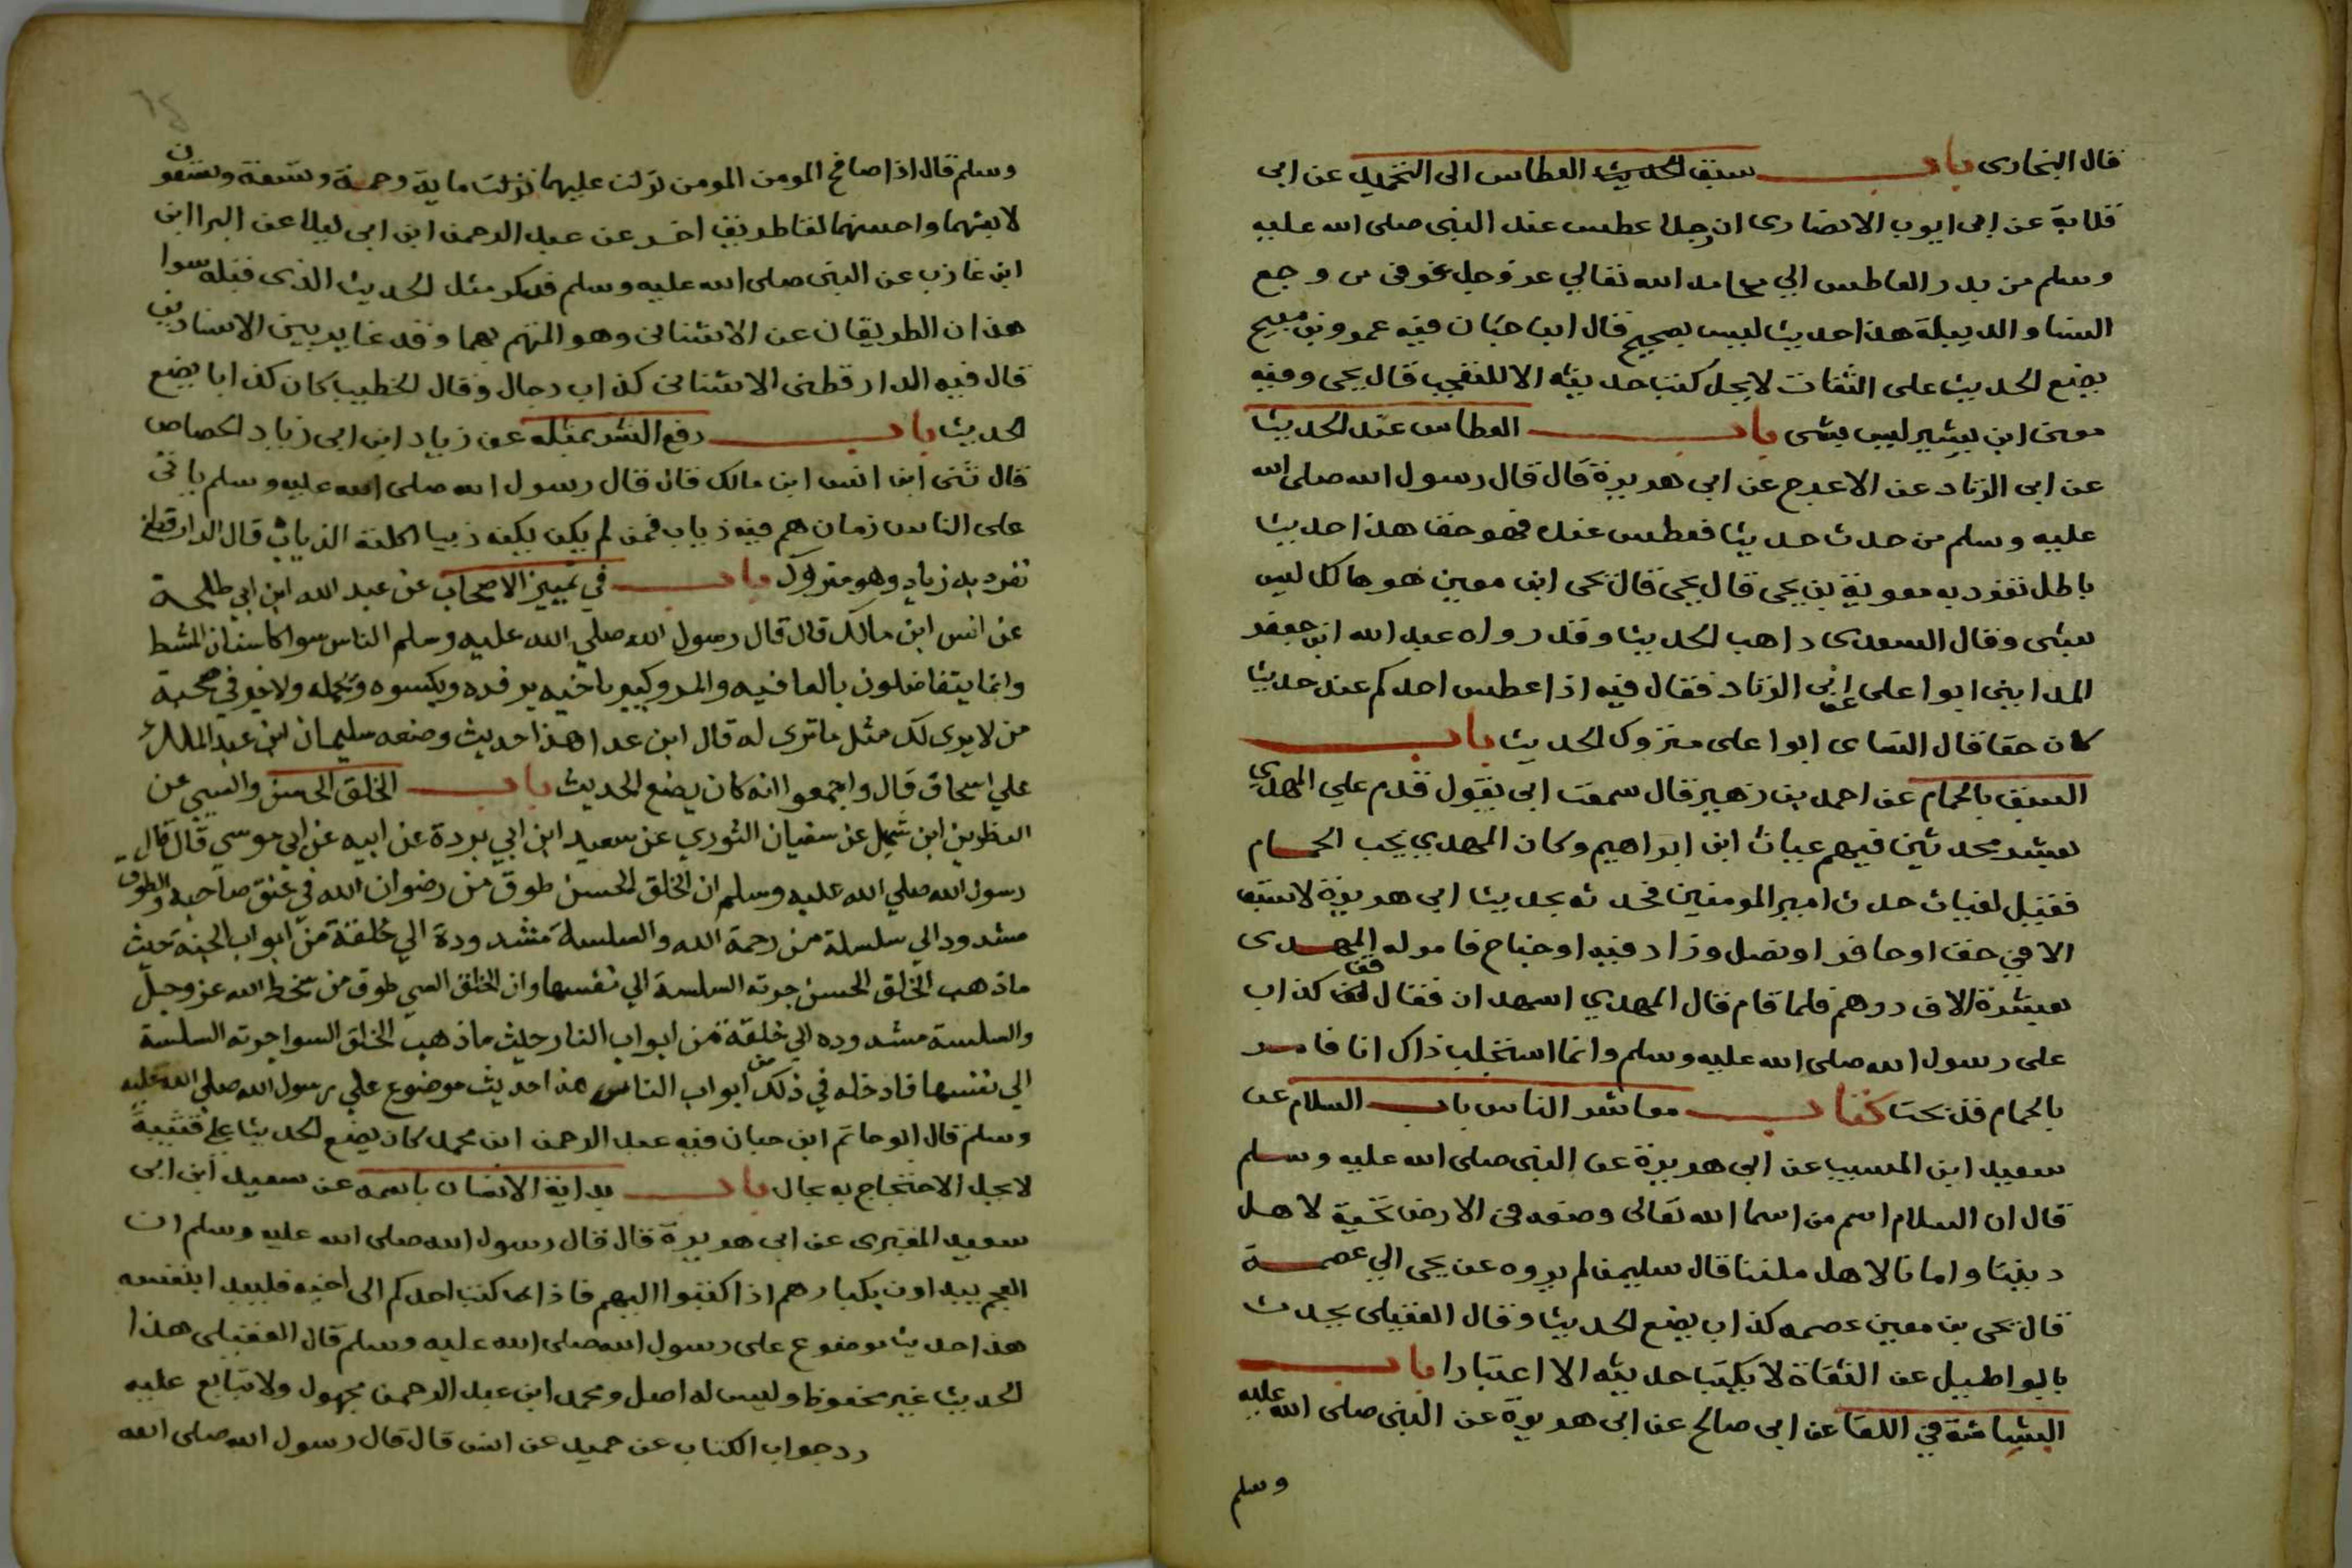 قال البخارى باب سبق العطاس الى التحميل عن ابى
قلابة عن ابى ايوب الانصارى ان رجلا عطس عند النبى صلى الله عليه
وسلم من بدر العاطس الي محامد الله تعالي عز وجل عوفى من وجع
هذا حديث ليس بصحيح قال ابن حبان فيه عمرو بن صبيح
يضع الحديث على الثقات لا يحل كتب حديثه الا للتعجب قال يحيى وفيه
معن ابن بشير ليس بشى باب العطاس عند الحديث
عن ابى الزناد عن الاعرج عن ابى هريرة قال قال رسول الله صلى الله
عليه وسلم من حدث حديثا فعطس عنده فهو حقا هذا حديث
باطل تفرد به معوية بن يحى قال يحى قال يحى ابن معين هو هالك ليس
بشى وقال السعدى ذاهب الحديث وقد رواه عبد الله ابن جعفر
المدايني ابوا على عن ابى الزناد فقال فيه اذا عطس احدكم عند حديث
كان حقا قال النساى ابوا على متروك الحديث باب
السبق بالحمام عن احمد بن زهير قال سمعت ابى يقول قدم علي المهدي
بعشر محدثين فيهم غياث ابن ابراهيم وكان المهدي يحب الحمام
فقيل لغياث حدث امير المومنين فحدثه بحديث ابى هريرة لا سبق
الا في خف او حافر او نصل وزاد فيه او جناح فامر له المهدى
بعشرة الاف درهم فلما قام قال المهدي اشهد ان قفال قفا كذاب
على رسول الله صلى الله عليه وسلم وانما استجلب ذاك انا فامر
بالحمام فذبحت كتاب معاشر الناس باب السلام عن
سعيد ابن المسيب عن ابى هريرة عن النبى صلى الله عليه وسلم
قال ان السلام اسم من اسما الله تعالى وضعه فى الارض تحية لاهل
ديننا وامانا لاهل ملتنا قال سليمن لم يروه عن يحى الي عصمة
قال يحى بن معين عصمه كذاب يضع الحديث وقال العقيلى يحدث
بالبواطيل عن الثقاة لا يكتب حديثه الا اعتبارا باب
البشاشة في اللقا عن ابى صالح عن ابى هريرة عن النبى صلى الله عليه
وسلم
وسلم قال اذا صافح المومن المومن نزلت عليهما نزلت ماية رحمة وتسعة وتسعون
لابشهما واحسنهما لقا طريق اخر عن عبد الرحمن ابن ابى ليلا عن البرا ابن
ابن عازب عن النبى صلى الله عليه وسلم فذكر مثل الحديث الذى قبله سوا
هذان الطريقان عن الاشنانى وهو المتهم بهما وقد غاير بين الاسنادين
قال فيه الدارقطنى الاشنانى كذاب دجال وقال الخطيب كان كذابا يضع
الحديث باب دفع الشر بمثله عن زياد ابن ابى زياد الجصاص
قال ثنى ابن انس ابن مالك قال قال رسول الله صلى الله عليه وسلم ياتى
على الناس زمان هم فيه ذياب فمن لم يكن يكن ذيبا اكلته الذياب قال الدارقطني
تفرد به زياد وهو متروك باب في تمييز الاصحاب عن عبد الله ابن ابي طلحة
عن انس ابن مالك قال قال رسول الله صلي الله عليه وسلم الناس سوا كاسنان المشط
وانما يتفاضلون بالعافيه والمرو كبير باخيه يرفده ويكسوه ويحمله ولا خير في صحبة
من لا يرى لك مثل ما ترى له قال ابن عدا هذا حديث وضعه سليمان ابن عبد الملك
علي اسحاق قال واجمعوا انه كان يضع الحديث باب الخلق الحسن والسي عن
النظر بن ابن شميل عن سفيان الثوري عن سعيد ابن ابي بردة عن ابيه عن ابي موسي قال قال
رسول الله صلي الله عليه وسلم ان الخلق الحسن طوق من رضوان الله في عنق صاحبه والطوق
مشدود الي سلسلة من رحمة الله والسلسلة مشدودة الي حلقة من ابواب الجنة حيث
ماذهب الخلق الحسن جرته السلسة الي نفسها وان الخلق السي طوق من سخط الله عز وجل
والسلسة مشدوده الي حلقة من ابواب النار حيث ماذهب الخلق السوا جرته السلسة
الي نفسها فادخله في ذلك من ابواب الناس هذا حديث موضوع علي رسول الله صلي الله عليه
وسلم قال ابو حاتم ابن حبان فيه عبد الرحمن ابن محمد كان يضع الحديث على قتيبة
لا يحل الاحتجاج به بحال باب بداية الانسان باسمه عن سعيد ابن ابى
سعيد المقبرى عن ابى هريرة قال قال رسول الله صلى الله عليه وسلم ان
العجم يبداون بكبارهم اذا كتبوا اليهم فاذا كتب احدكم الى اخيه فليبدا بنفسه
هذا حديث موضوع على رسول الله صلى الله عليه وسلم قال العقيلى هذا
الحديث غير محفوظ وليس له اصل ومحمد ابن عبد الرحمن مجهول ولا يتابع عليه
رد جواب الكتاب عن حميد عن انس قال قال رسول الله صلى الله